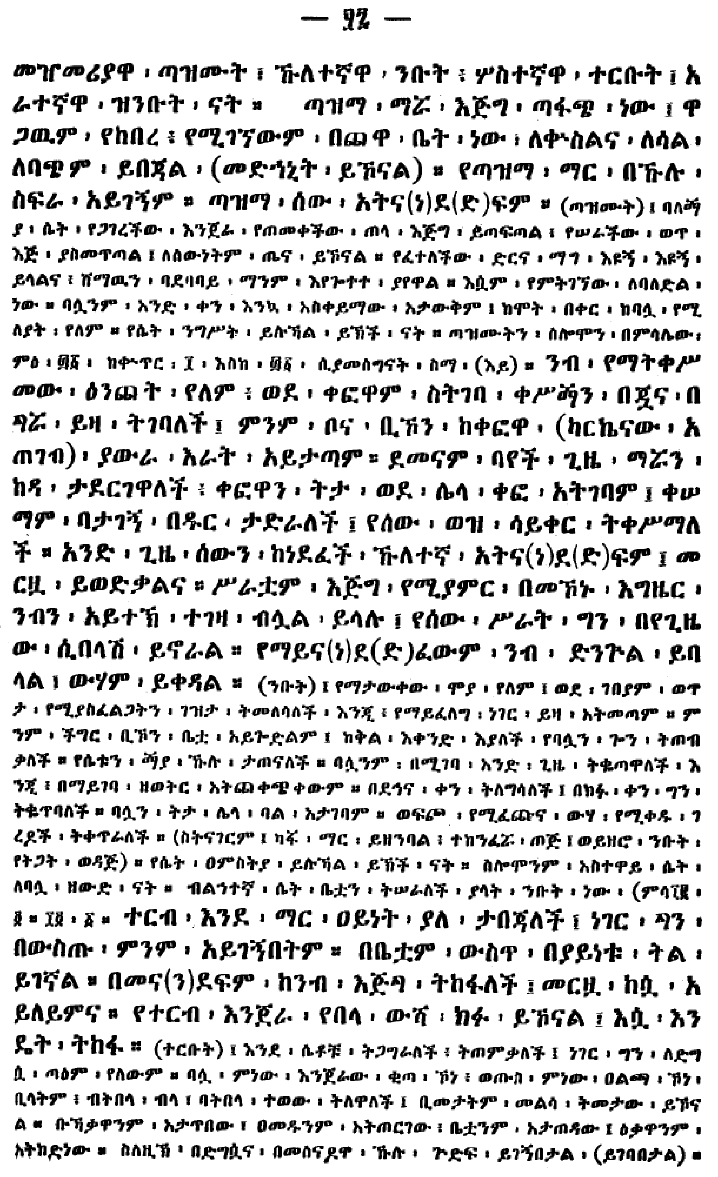 — ፺፯ —
መዠመሪያዋ ፡ ጣዝሙት ፤ ኹለተኛዋ ፡ ንቡት ፤ ሦስተኛዋ ፡ ተርቡት ፤ አ
ራተኛዋ ፡ ዝንቡት ፡ ናት ። ጣዝማ ፡ ማሯ ፡ እጅግ ፡ ጣፋጭ ፡ ነው ፤ ዋ
ጋዉም ፡ የከበረ ፤ የሚገኘውም ፡ በጨዋ ፡ ቤት ፡ ነው ፤ ለቍስልና ፡ ለሳል ፡
ለባጭም ፡ ይበጃል ፡ (መድኀኒት ፡ ይኾናል) ። የጣዝማ ፡ ማር ፡ በኹሉ ፡
ስፍራ ፡ አይገኝም ። ጣዝማ ፡ ሰው ፡ አትና(ነ)ደ(ድ)ፍም ። (ጣዝሙት) ፤ ባለሟ
ያ ፡ ሴት ፡ የጋገረችው ፡ እንጀራ ፡ የጠመቀችው ፡ ጠላ ፡ እጅግ ፡ ይጣፍጣል ፤ የሠራችው ፡ ወጥ ፡
እጅ ፡ ያስመጥጣል ፤ ለሰውነትም ፡ ጤና ፡ ይኾናል ። የፈተለችው ፡ ድርና ፡ ማግ ፡ እዩኝ ፡ እዩኝ ፡
ይላልና ፤ ሸማዉን ፡ ባደባባይ ፡ ማንም ፡ እየጐተተ ፡ ያየዋል ። እሷም ፡ የምትገኘው ፡ ለባለድል ፡
ነው ። ባሏንም ፡ አንድ ፡ ቀን ፡ እንኳ ፡ አስቀይማው ፡ አታውቅም ፤ ከሞት ፡ በቀር ፡ ከባሏ ፡ የሚ
ለያት ፡ የለም ። የሴት ፡ ንግሥት ፡ ይሉኻል ፡ ይኸች ፡ ናት ። ጣዝሙትን ፡ ሰሎሞን ፡ በምሳሌው ፡
ምዕ ፡ ፴፩ ፡ ከቍጥር ፡ ፲ ፡ እስከ ፡ ፴፩ ፡ ሲያመሰግናት ፡ ስማ ፡ (እይ) ። ንብ ፡ የማትቀሥ
መው ፡ ዕንጨት ፡ የለም ፤ ወደ ፡ ቀፎዋም ፡ ስትገባ ፡ ቀሥሟን ፡ በጇና ፡ በ
ጓሯ ፡ ይዛ ፡ ትገባለች ፤ ምንም ፡ ቦና ፡ ቢኾን ፡ ከቀፎዋ ፡ (ካርኬናው ፡ አ
ጠገብ) ፡ ያውራ ፡ እራት ፡ አይታጣም ። ደመናም ፡ ባየች ፡ ጊዜ ፡ ማሯን ፡
ከዳ ፡ ታደርገዋለች ፤ ቀፎዋን ፡ ትታ ፡ ወደ ፡ ሌላ ፡ ቀፎ ፡ አትገባም ፤ ቀሠ
ማም ፡ ባታገኝ ፡ በዱር ፡ ታድራለች ፤ የሰው ፡ ወዝ ፡ ሳይቀር ፡ ትቀሥማለ
ች ። አንድ ፡ ጊዜ ፡ ሰውን ፡ ከነደፈች ፡ ኹለተኛ ፡ አትና(ነ)ደ(ድ)ፍም ፤ መ
ርዟ ፡ ይወድቃልና ። ሥራቷም ፡ እጅግ ፡ የሚያምር ፡ በመኾኑ ፡ እግዜር ፡
ንብን ፡ አይተኽ ፡ ተገዛ ፡ ብሏል ፡ ይላሉ ፤ የሰው ፡ ሥራት ፡ ግን ፡ በየጊዜ
ው ፡ ሲበላሽ ፡ ይኖራል ። የማይና(ነ)ደ(ድ)ፈውም ፡ ንብ ፡ ድንጕል ፡ ይባ
ላል ፤ ውሃም ፡ ይቀዳል ። (ንቡት) ፤ የማታውቀው ፡ ሞያ ፡ የለም ፤ ወደ ፡ ገበያም ፡ ወጥ
ታ ፡ የሚያስፈልጋትን ፡ ገዝታ ፡ ትመለሳለች ፡ እንጂ ፤ የማይፈለግ ፡ ነገር ፡ ይዛ ፡ አትመጣም ። ም
ንም ፡ ችግር ፡ ቢኾን ፡ ቤቷ ፡ አይጐድልም ፤ ከቅል ፡ እቀንድ ፡ እያለች ፡ የባሏን ፡ ጐን ፡ ትጠብ
ቃለች ። የሴቱን ፡ ሟያ ፡ ኹሉ ፡ ታጠናለች ። ባሏንም ፡ በሚገባ ፡ አንድ ፡ ጊዜ ፡ ትቈጣዋለች ፡ እ
ንጂ ፤ በማይገባ ፡ ዘወትር ፡ አትጨቀጭቀውም ። በደኅና ፡ ቀን ፡ ትለግሳለች ፤ በክፉ ፡ ቀን ፡ ግን ፡
ትቈጥባለች ። ባሏን ፡ ትታ ፡ ሌላ ፡ ባል ፡ አታገባም ። ወፍጮ ፡ የሚፈጩና ፡ ውሃ ፡ የሚቀዱ ፡ ገ
ረዶች ፡ ትቀጥራለች ። (ስትናገርም ፤ ካፏ ፡ ማር ፡ ይዘንባል ፤ ተከንፈሯ ፡ ጠጅ ፤ ወይዘሮ ፡ ንቡት ፡
የትጋት ፡ ወዳጅ) ። የሴት ፡ ዐምስትያ ፡ ይሉኻል ፡ ይኸች ፡ ናት ። ሰሎሞንም ፡ አስተዋይ ፡ ሴት ፡
ለባሏ ፡ ዘውድ ፡ ናት ። ብልኀተኛ ፡ ሴት ፡ ቤቷን ፡ ትሠራለች ፡ ያላት ፡ ንቡት ፡ ነው ፡
ተርብ ፡ እንደ ፡ ማር ፡ ዐይነት ፡ ያለ ፡ ታበጃለች ፤ ነገር ፡ ጓን ፡
በውስጡ ፡ ምንም ፡ አይገኝበትም ። በቤቷም ፡ ውስጥ ፡ በያይነቱ ፡ ትል ፡
ይገኛል ። በመና(ን)ደፍም ፡ ከንብ ፡ እጅጓ ፡ ትከፋለች ፤ መርዟ ፡ ከሷ ፡ አ
ይለይምና ። የተርብ ፡ እንጀራ ፡ የበላ ፡ ውሻ ፡ ክፉ ፡ ይኾናል ፤ እሷ ፡ እን
ዴት ፡ ትከፋ ። (ተርቡት) ፤ እንደ ፡ ሴቶቹ ፡ ትጋግራለች ፤ ትጠምቃለች ፤ ነገር ፡ ግን ፡ ለድግ
ሷ ፡ ጣዕም ፡ የለውም ። ባሏ ፡ ምነው ፡ እንጀራው ፡ ቂጣ ፡ ኾነ ፤ ወጡስ ፡ ምነው ፡ ዐልጫ ፡ ኾነ ፡
ቢላትም ፤ ብትበላ ፡ ብላ ፤ ባትበላ ፡ ተወው ፡ ትለዋለች ፤ ቢመታትም ፡ መልሳ ፡ ትመታው ፡ ይኾና
ል ። ቡኻቃዋንም ፡ አታጥበው ፤ ዐመዱንም ፡ አትጠርገው ፤ ቤቷንም ፡ አታጠዳው ፤ ዕቃዋንም ፡
አትከድነው ። ስለዚኽ ፡ በድግሷና ፡ በመሰናዶዋ ፡ ኹሉ ፡ ጕድፍ ፡ ይገኝበታል ፡ (ይገባበታል) ።